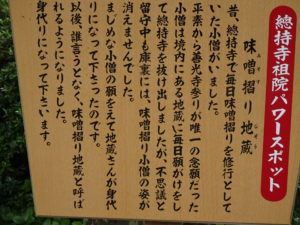 總持寺祖院パワースポット
味噌摺り地蔵
みそすりじぞう
昔、總持寺で毎日味噌摺りを修行として
いた小僧がいました。
平素から善光寺参りが唯一の念願だった
小僧は境内にある地蔵に毎日願がけをし
て總持寺を抜け出しましたが、不思議と
留守中も庫裏には、味噌摺り小僧の姿が
消えませんでした。
まじめな小僧の願をえて地蔵さんが身代
りになって下さったのです。
以後、誰言うとなく、味噌摺り地蔵と呼ば
れるようになりました。
身代りになって下さいます。